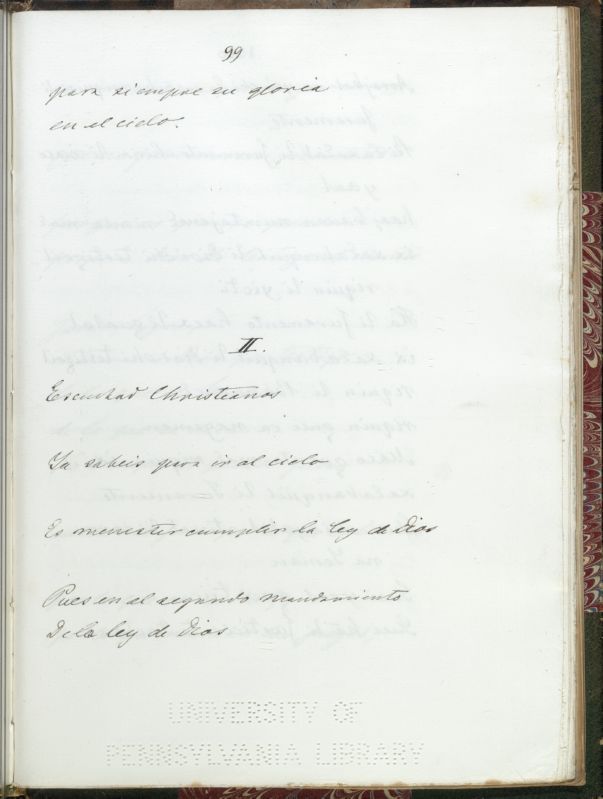 99
para siempre su gloria
en el cielo.
II.
Escuchad Christianos
Ya sabeis para ir al cielo
Es menester cumplir la ley de Dios
Pues en el segundo mandamiento
De la ley de Dios
UNIVERSITY OF
PENNSYLVANIA LIBRARY